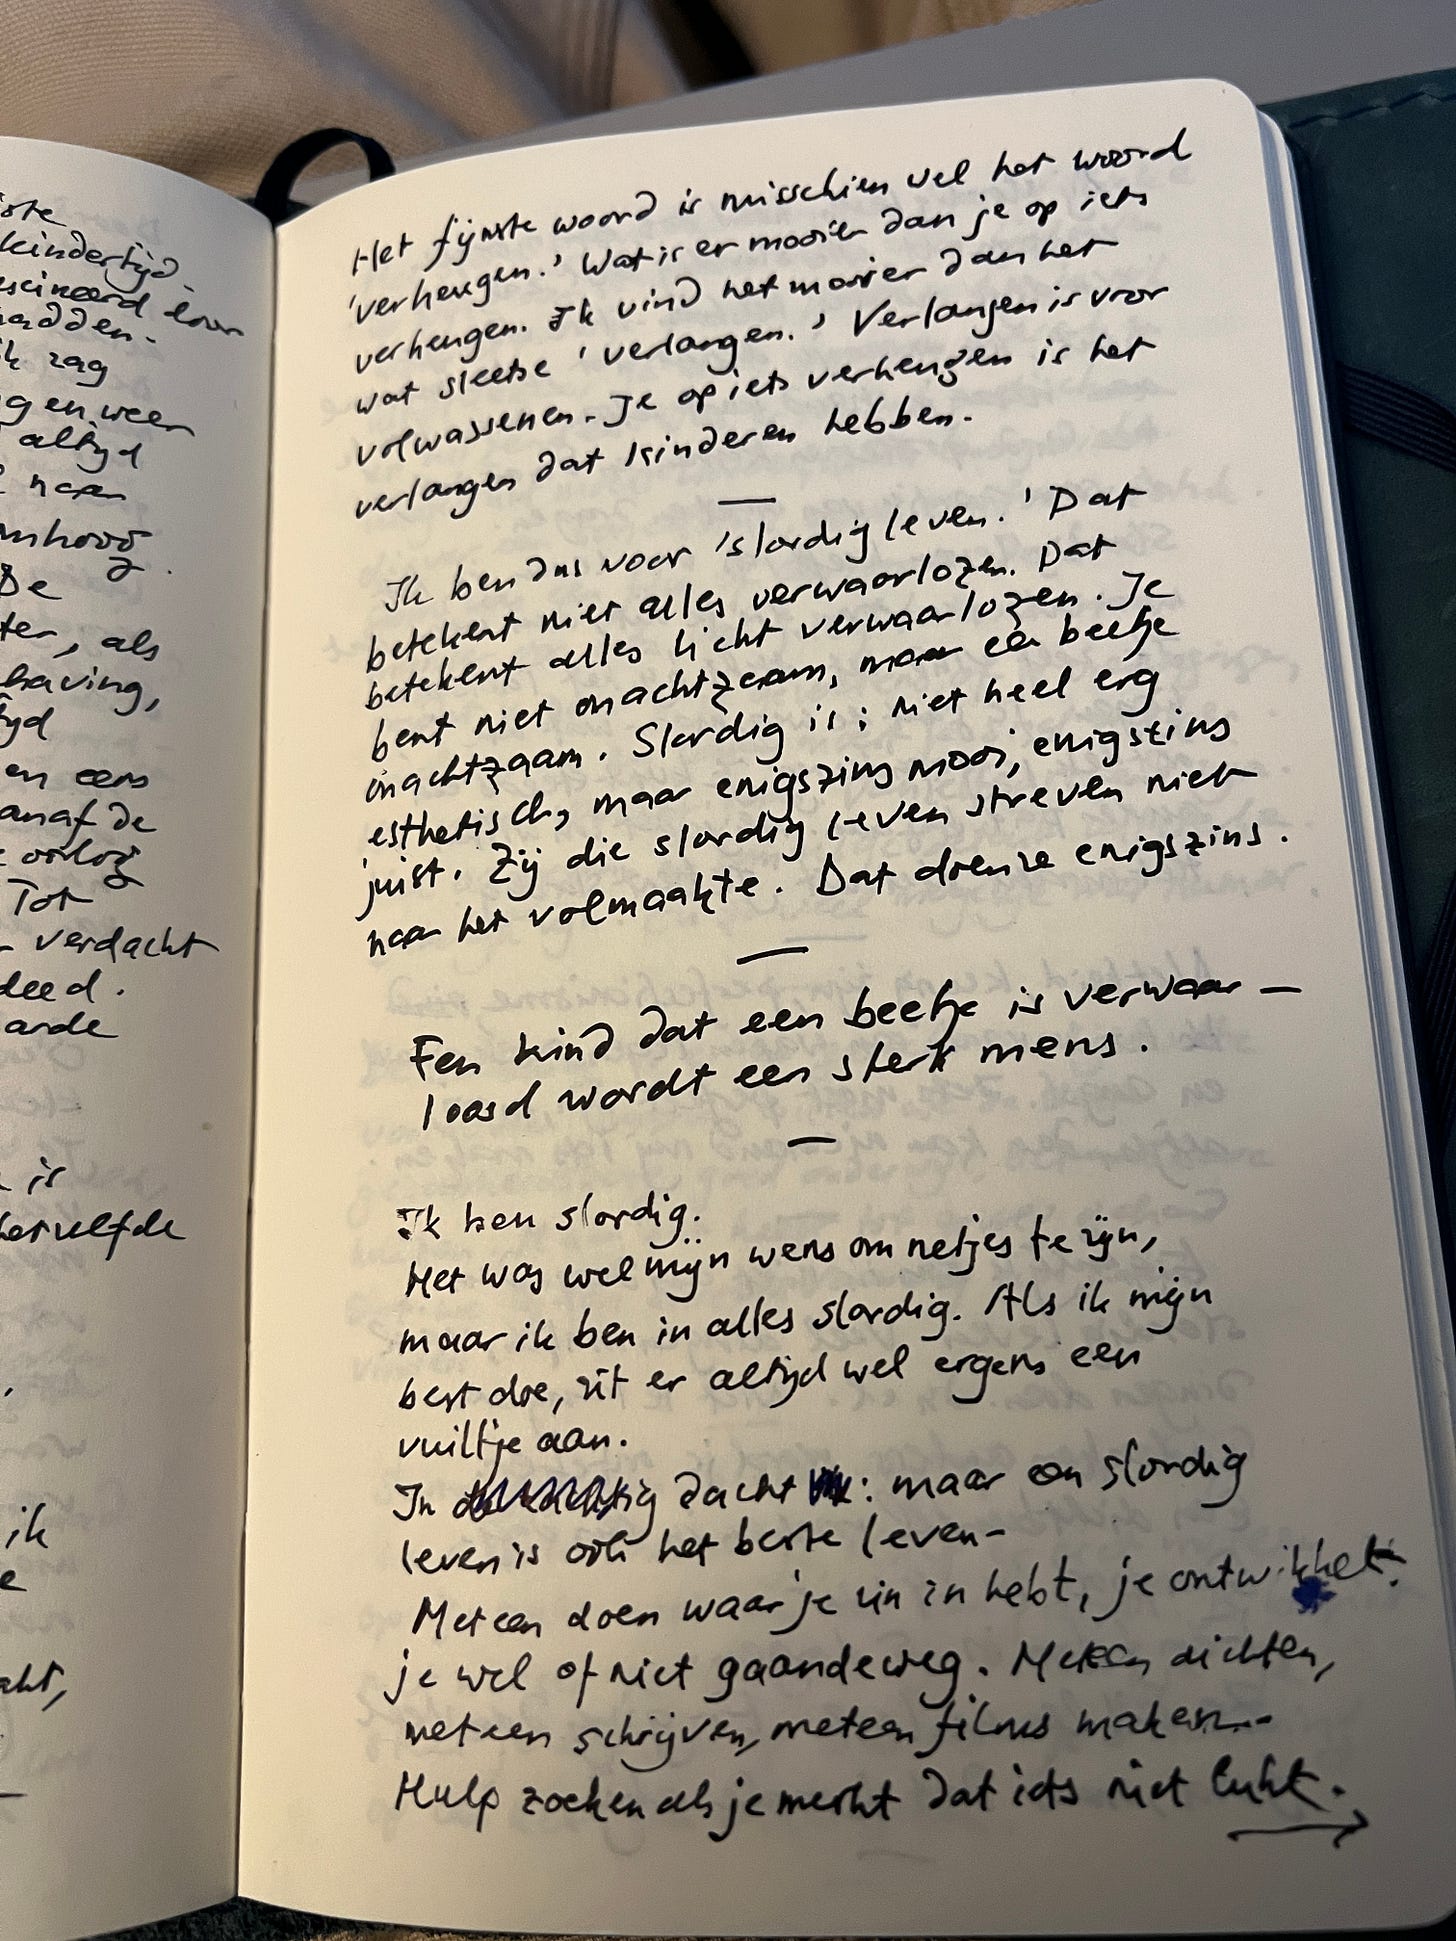 iste
kindertijd.
door
hadden.
ik zag
en weer
altijd
naar
omhoog.
De
ter, als
having,
en eens
vanaf de
oorlog
Tot
verdacht
deed.
aarde
is
hetzelfde
ik
Het fijnste woord is misschien wel het woord
'verheugen.' Wat is er mooier dan je op iets
verheugen. Ik vind het mooier dan het
wat sleetse 'verlangen.' Verlangen is voor
volwassenen. Je op iets verheugen is het
verlangen dat kinderen hebben.
Ik ben dus voor 'slordig leven.' Dat
betekent niet alles verwaarlozen. Dat
betekent alles licht verwaarlozen. Je
bent niet onachtzaam, maar een beetje
onachtzaam. Slordig is: niet heel erg
esthetisch, maar enigszins mooi, enigszins
juist. Zij die slordig leven streven niet
naar het volmaakte. Dat doen ze enigszins.
Een kind dat een beetje is verwaar-
loosd wordt een sterk mens.
Ik ben slordig.
Het was wel mijn wens om netjes te zijn,
maar ik ben in alles slordig. Als ik mijn
best doe, zit er altijd wel ergens een
vuiltje aan.
In dacht : maar een slordig
leven is ook het beste leven-
Meteen doen waar je zin in hebt, je ontwikkelt
je wel of niet gaandeweg. Meteen dichten,
meteen schrijven, meteen films maken...
Hulp zoeken als je merkt dat iets niet lukt.
→